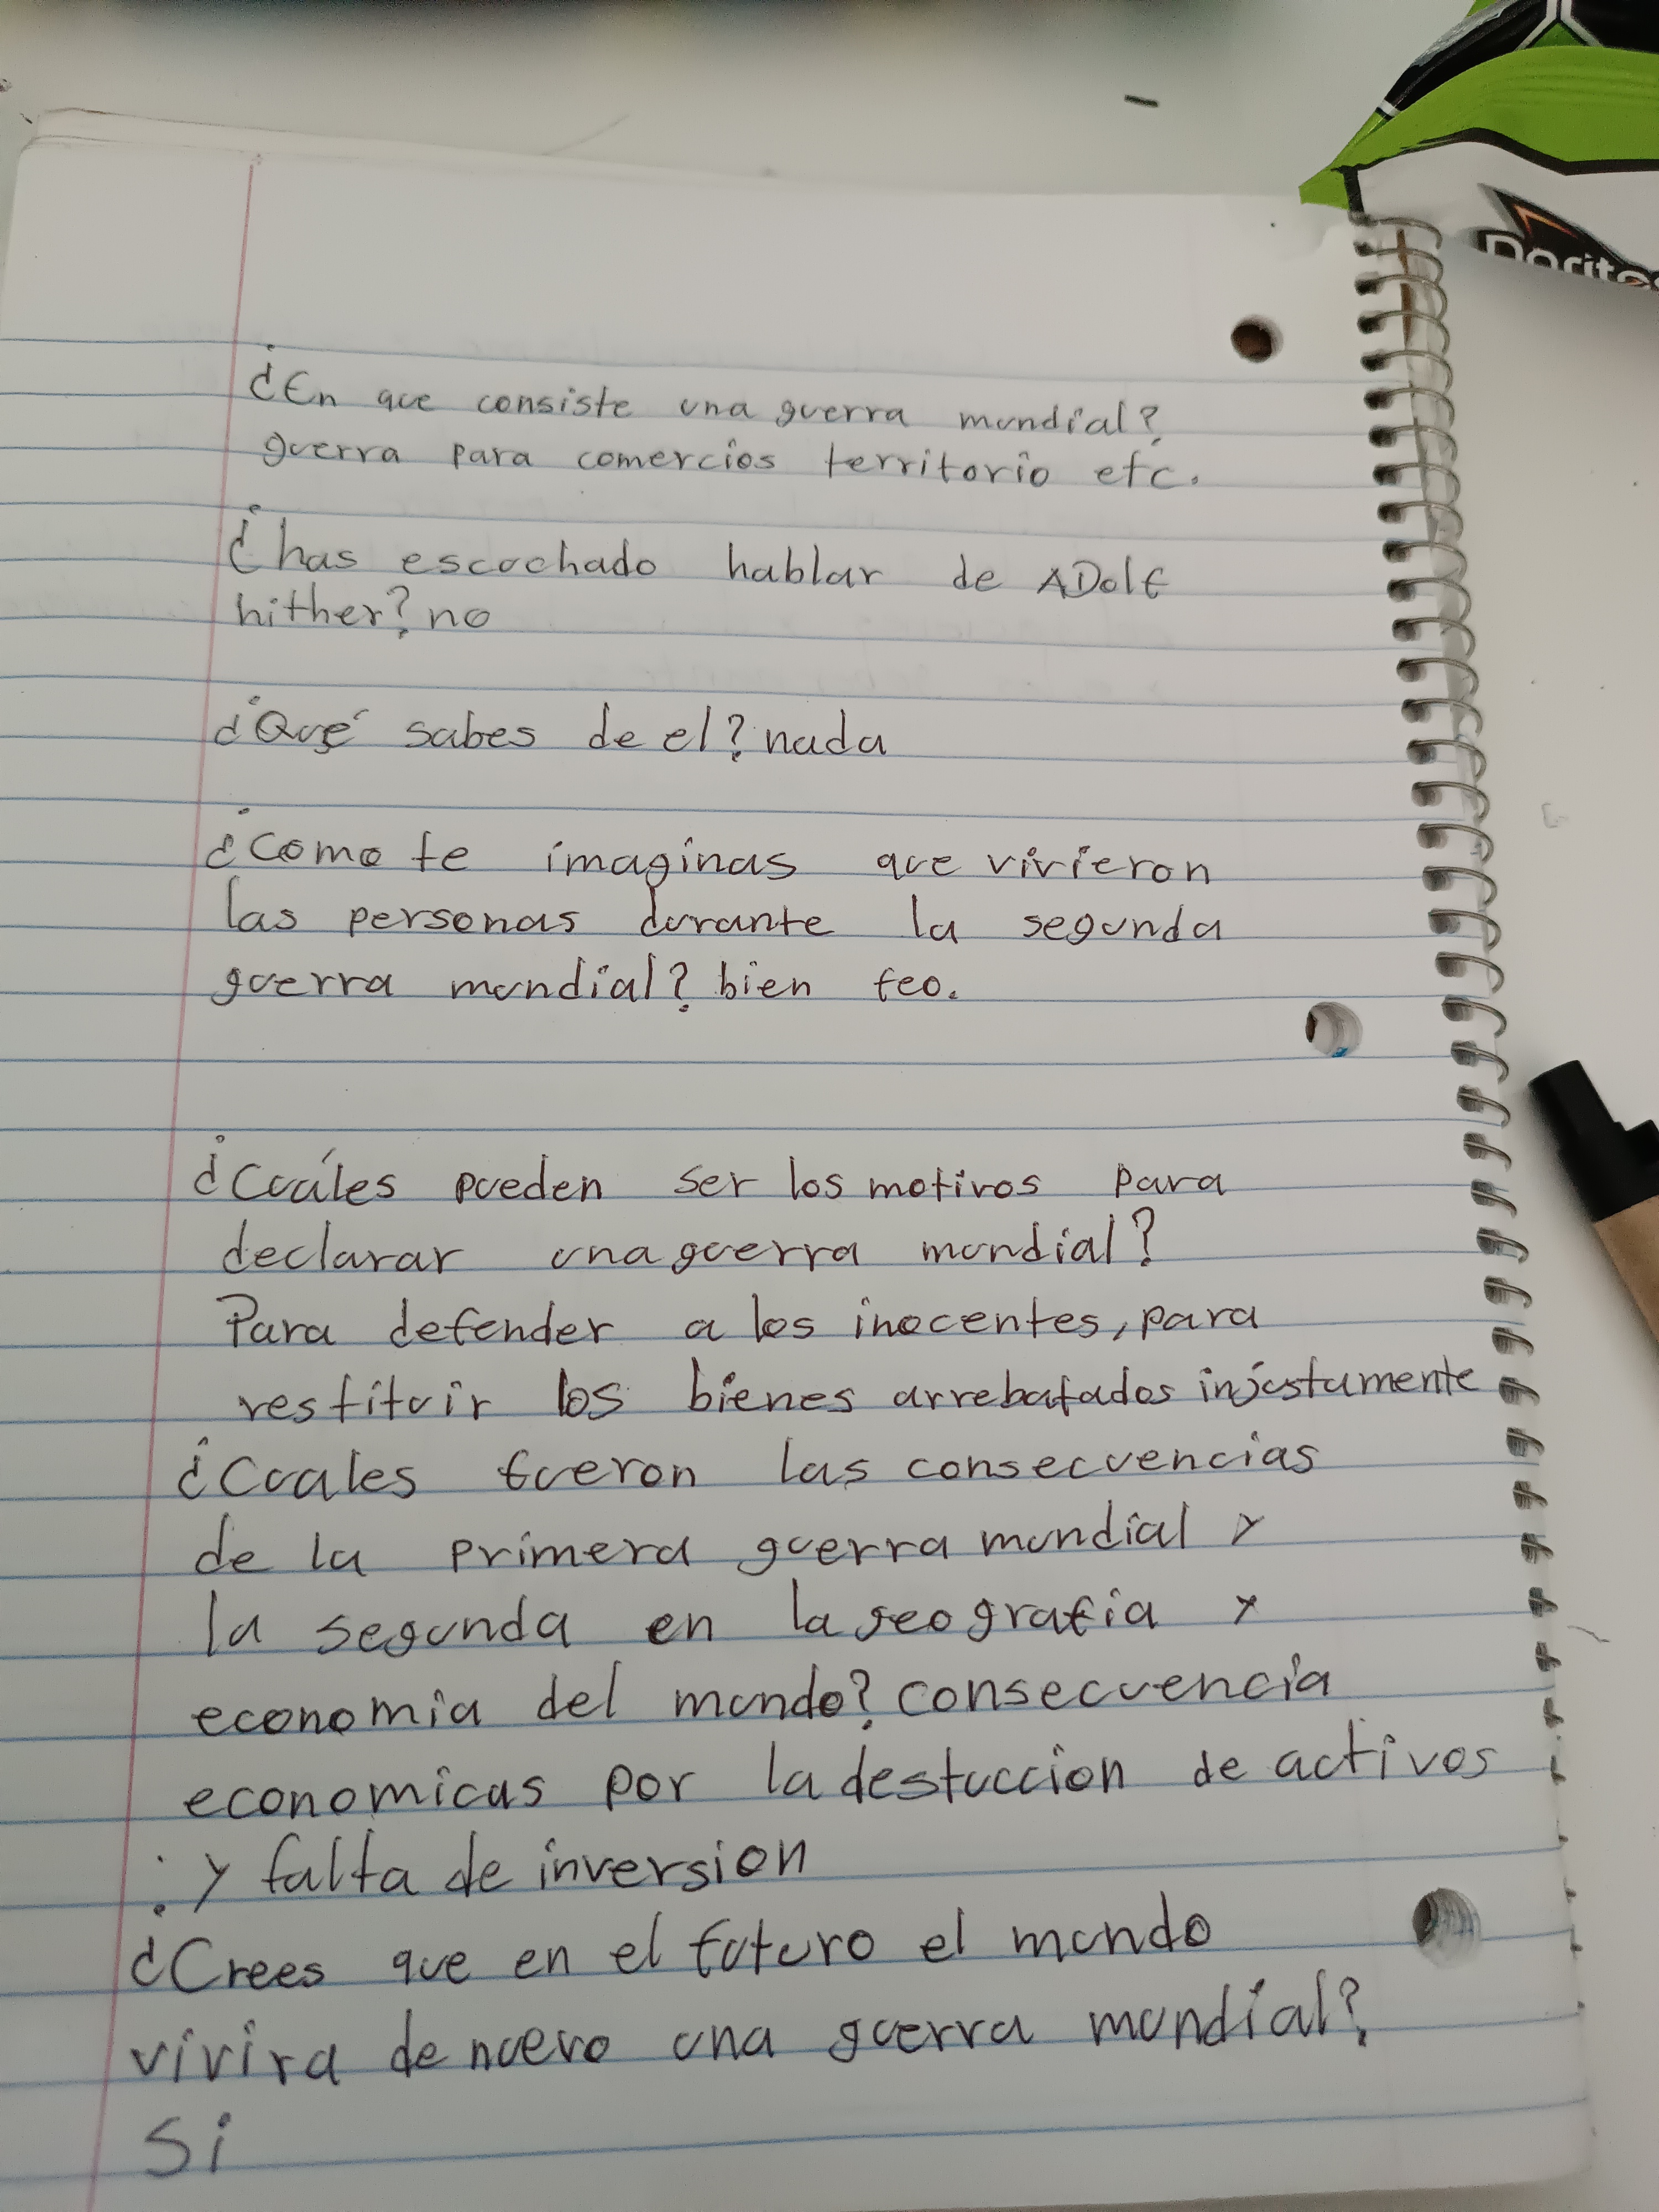 ¿En que consiste una guerra mundial?
guerra para comercios territorio etc.
¿has escuchado hablar de ADolf
hither? no
¿Qué sabes de el? nada
¿Como te imaginas que vivieron
las personas durante la segunda
guerra mundial? bien feo.
¿Cuáles pueden ser los motivos para
declarar una guerra mundial?
Para defender a los inocentes, para
restituir los bienes arrebatados injustamente
¿Cuales fueron las consecuencias
de la primera guerra mundial y
la segunda en la geografia y
economia del mundo? consecuencia
economicas por la destuccion de activos
y falta de inversion
¿Crees que en el futuro el mundo
vivira de nuevo una guerra mundial?
Si
Doritos